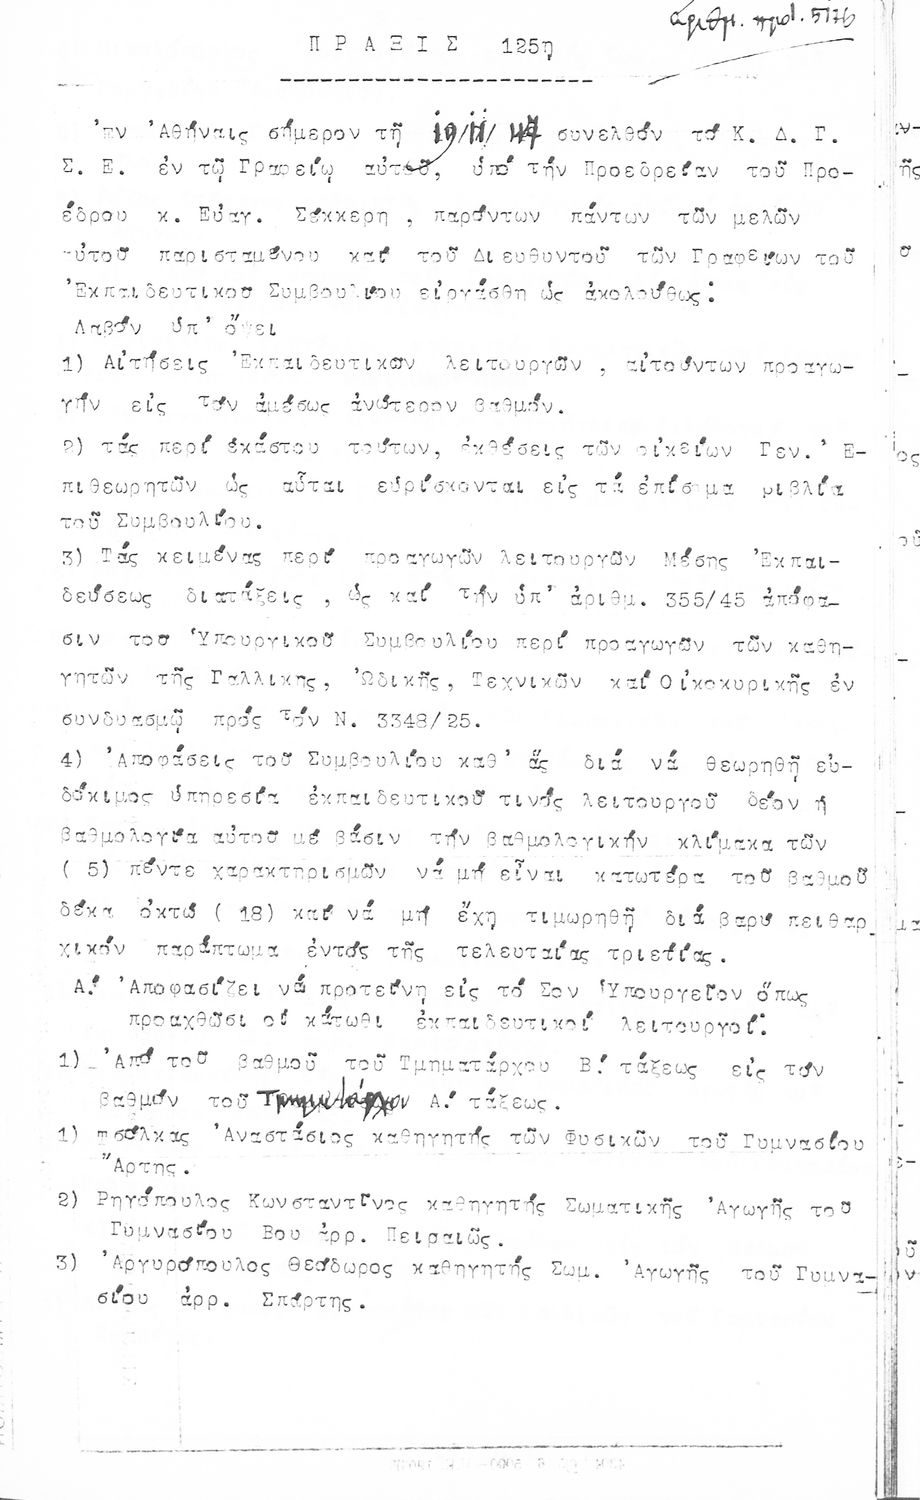 ἀριθμ. πρωτ. 5176
ΠΡΑΞΙΣ 125η
Ἐν Ἀθήναις σήμερον τῇ 19/11/47 συνελθόν τό Κ. Δ. Γ.
Σ. Ε. ἐν τῷ Γραφείῳ αὐτοῦ, ὑπό τήν Προεδρείαν τοῦ Προ-
έδρου κ. Εὐαγ. Σέκκερη , παρόντων πάντων τῶν μελῶν
αὐτοῦ παρισταμένου καί τοῦ Διευθυντοῦ τῶν Γραφείων τοῦ
Ἐκπαιδευτικοῦ Συμβουλίου εἰργάσθη ὡς ἀκολούθως:
Λαβόν ὑπ' ὄψει
1) Αἰτήσεις Ἐκπαιδευτικῶν λειτουργῶν , αἰτούντων προαγω-
γήν εἰς τόν ἀμέσως ἀνώτερον βαθμόν.
2) τάς περί ἑκάστου τούτων, ἐκθέσεις τῶν οἰκείων Γεν.' Ε-
πιθεωρητῶν ὡς αὗται εὑρίσκονται εἰς τά ἐπίσημα βιβλία
τοῦ Συμβουλίου.
3) Τάς κειμένας περί προαγωγῶν λειτουργῶν Μέσης Ἐκπαι-
δεύσεως διατάξεις , ὡς καί τήν ὑπ' ἀριθμ. 355/45 ἀπόφα-
σιν του Ὑπουργικοῦ Συμβουλίου περί προαγωγῶν τῶν καθη-
γητῶν τῆς Γαλλικης, Ὠδικῆς, Τεχνικῶν καί Οἰκοκυρικῆς ἐν
συνδυασμῷ πρός τόν Ν. 3348/25.
4) Ἀποφάσεις τοῦ Συμβουλίου καθ' ἅς διά νά θεωρηθῇ εὐ-
δόκιμος ὑπηρεσία ἐκπαιδευτικοῦ τινός λειτουργοῦ δέον ἡ
βαθμολογία αὐτοῦ μέ βάσιν τήν βαθμολογικήν κλίμακα τῶν
( 5) πέντε χαρακτηρισμῶν νά μή εἶναι κατωτέρα τοῦ βαθμοῦ
δέκα ὀκτώ ( 18) καί νά μή ἔχῃ τιμωρηθῇ διά βαρύ πειθαρ_
χικόν παράπτωμα ἐντός τῆς τελευταίας τριετίας.
Α.' Ἀποφασίζει νά προτείνῃ εἰς τό Σον Ὑπουργεῖον ὅπως
προαχθῶσι οἱ κάτωθι ἐκπαιδευτικοί λειτουργοί:
1)_ Ἀπό τοῦ βαθμοῦ τοῦ Τμηματάρχου Β.' τάξεως εἰς τόν
βαθμόν τοῦ Τμηματάρχου Α.' τάξεως.
1) Τσόλκας Ἀναστάσιος καθηγητής τῶν Φυσικῶν τοῦ Γυμνασίου
Ἄρτης.
2) Ρηγόπουλος Κωνσταντῖνος καθηγητής Σωματικῆς Ἀγωγῆς τοῦ
Γυμνασίου Βου ἀρρ. Πειραιῶς.
3) Ἀργυρόπουλος Θεόδωρος καθηγητής Σωμ. Ἀγωγῆς τοῦ Γυμνα-
σίου ἀρρ. Σπάρτης.